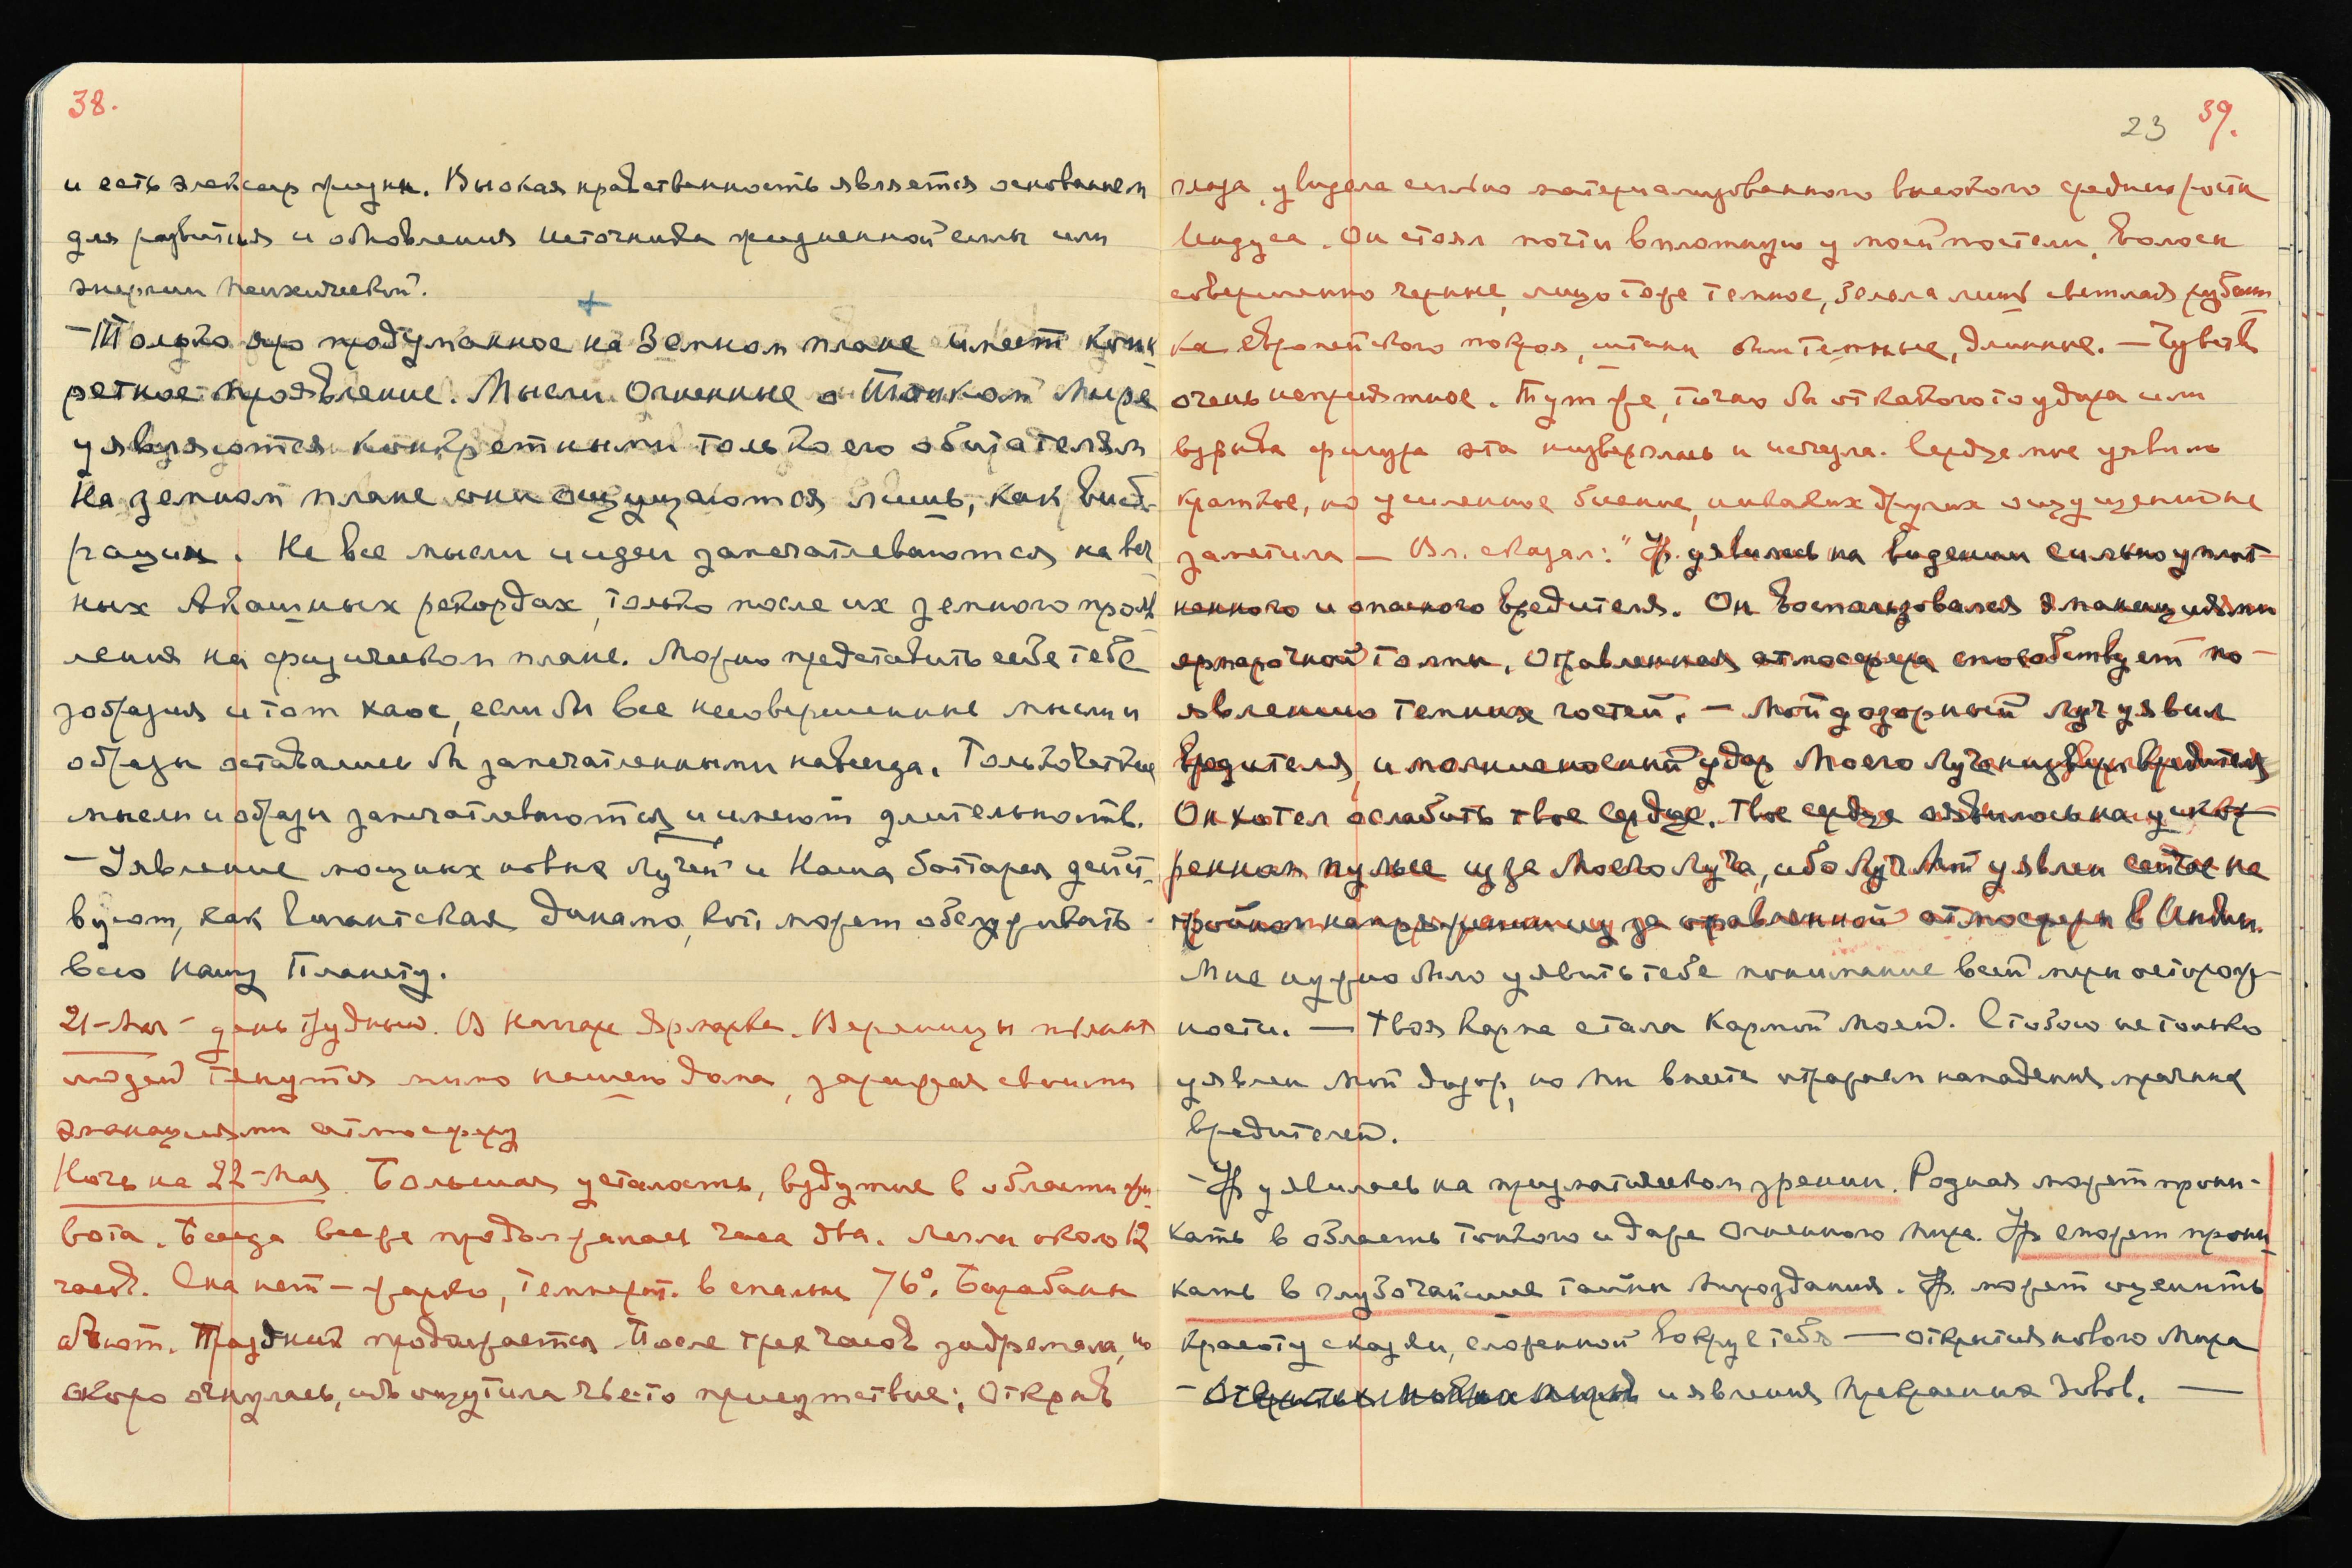 38.
и есть элексир жизни. Высокая нравственность является основанием
для развития и обновления источника жизненной силы или
энергии психической.
– Только ярко продуманное на Земном плане имеет конк
ретное проявление. Мысли Огненные о Тонком Мире
уявляются конкретными только его обитателям
На земном плане они ощущаются лишь, как виб-
рации. Не все мысли и идеи запечатлеваются на веч
ных Акашных рекордах, только после их земного прояв
ления на физическом плане. Можно представить себе те без
образия и тот хаос, если бы все несовершенные мысли и
образы оставались бы запечатленными навсегда. Только четкие
мысли и образы запечатлеваются и имеют длительность.
– Уявление мощных новых Лучей и Наша баттарея дейст-
вуют, как Гигантская динамо, кот. может обслуживать
всю нашу Планету.
21-Мая – день трудный. В Наггаре Ярмарка. Вереницы пьяных
людей тянутся мимо нашего дома, заражая своими
эманациями атмосферу
Ночь на 22-Мая. Большая усталость, вздутие в области жи-
вота. Беседа все же продолжалась часа два. Легли около 12
часов. Сна нет – жарко, температ. в спальне 76°. Барабаны
бьют. Праздник продолжается. После трех часов задремала, но
скоро очнулась, ибо ощутила чье-то присутствие; открыв
23 39.
глаза, увидела сильно материализованного высокого среднего роста
Индуса. Он стоял почти вплотную у моей постели, волосы
совершенно черные, лицо тоже темное, белела лишь светлая рубаш
ка европейского покроя, штаны были темные, длинные. – Чувств
очень неприятное. Тут же, точно бы от какого то удара или
взрыва фигура эта низверглась и исчезла. Сердце мое уявило
краткое, но усиленное биение, никаких других ощущений не
заметила – Вл. сказал: "Ур. уявилась на видении сильно уплот-
ненного и опасного вредителя. Он воспользовался эманациями
ярмарочной толпы. Отравленная атмосфера способствует по-
явлению темных гостей. – Мой дозорный луч уявил
вредителя, и молниеносный удар Моего Луча низверг вредителя
Он хотел ослабить твое Сердце. Твое сердце оявилось на уско-
ренном пульсе из за Моего Луча, ибо Луч Мой уявлен сейчас на
тройном напряжении из за отравленной атмосферы в Индии.
Мне нужно было уявить тебе понимание всей меры осторож-
ности. – Твоя Карма стала Кармой Моей. С тобою не только
уявлен Мой дозор, но мы вместе отражаем нападения мрачных
вредителей.
– Ур. уявилась на призматическом зрении. Родная может прони-
кать в область тонкого и даже Огненного Мира. Ур. сможет прони-
кать в глубочайшие тайны Мироздания. Ур. может оценить
красоту сказки, сложенной вокруг тебя – открытия нового Мира
– и явления прекрасных Зовов. –